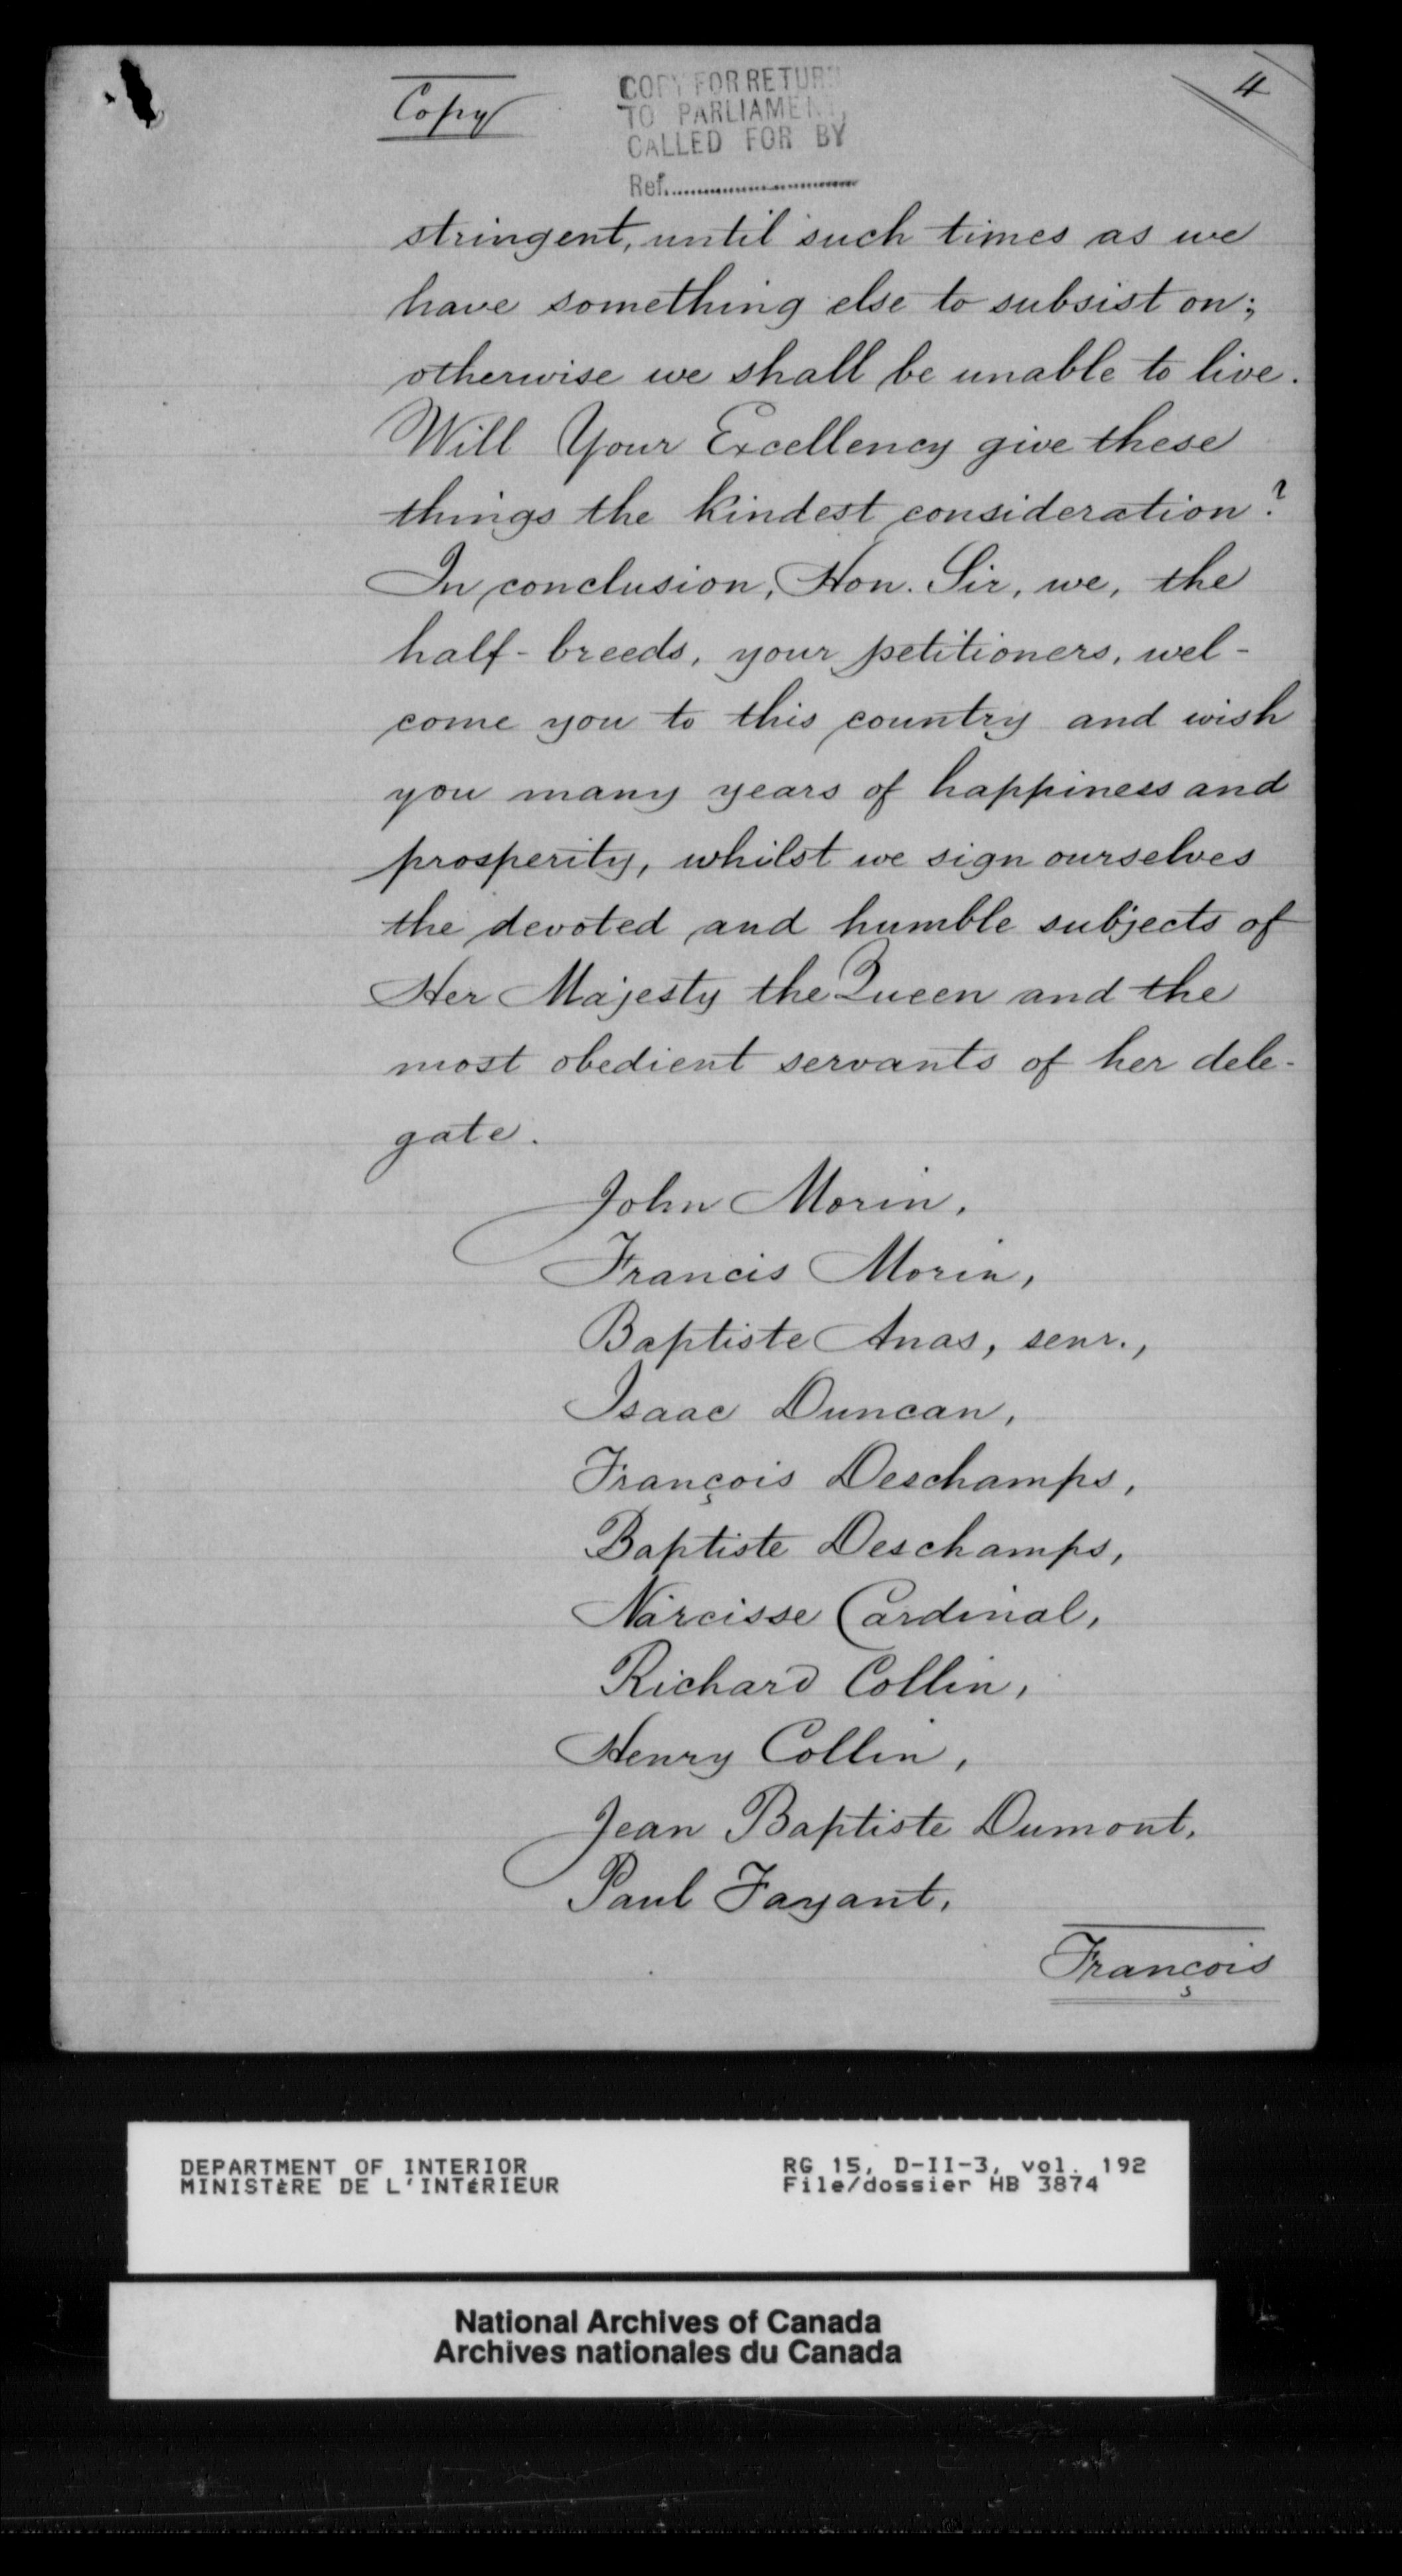 Copy
COPY FOR RETURN
TO PARLIAMENT,
CALLED FOR BY
Ref.
4
stringent, until such times as we
have something else to subsist on;
otherwise we shall be unable to live.
Will Your Excellency give these
things the kindest consideration?
In conclusion, Hon. Sir, we, the
half-breeds, your petitioners, wel-
come you to this country and wish
you many years of happiness and
prosperity, whilst we sign ourselves
the devoted and humble subjects of
Her Majesty the Queen and the
most obedient servants of her dele-
gate.
John Morin,
Francis Morin,
Baptiste Anas, senr.,
Isaac Duncan,
François Deschamps,
Baptiste Deschamps,
Narcisse Cardinal,
Richard Collin,
Henry Collin,
Jean Baptiste Dumont,
Paul Fayant,
François
DEPARTMENT OF INTERIOR
MINISTÈRE DE L'INTÉRIEUR
RG 15, D-II-3, vol. 192
File/dossier HB 3874
National Archives of Canada
Archives nationales du Canada